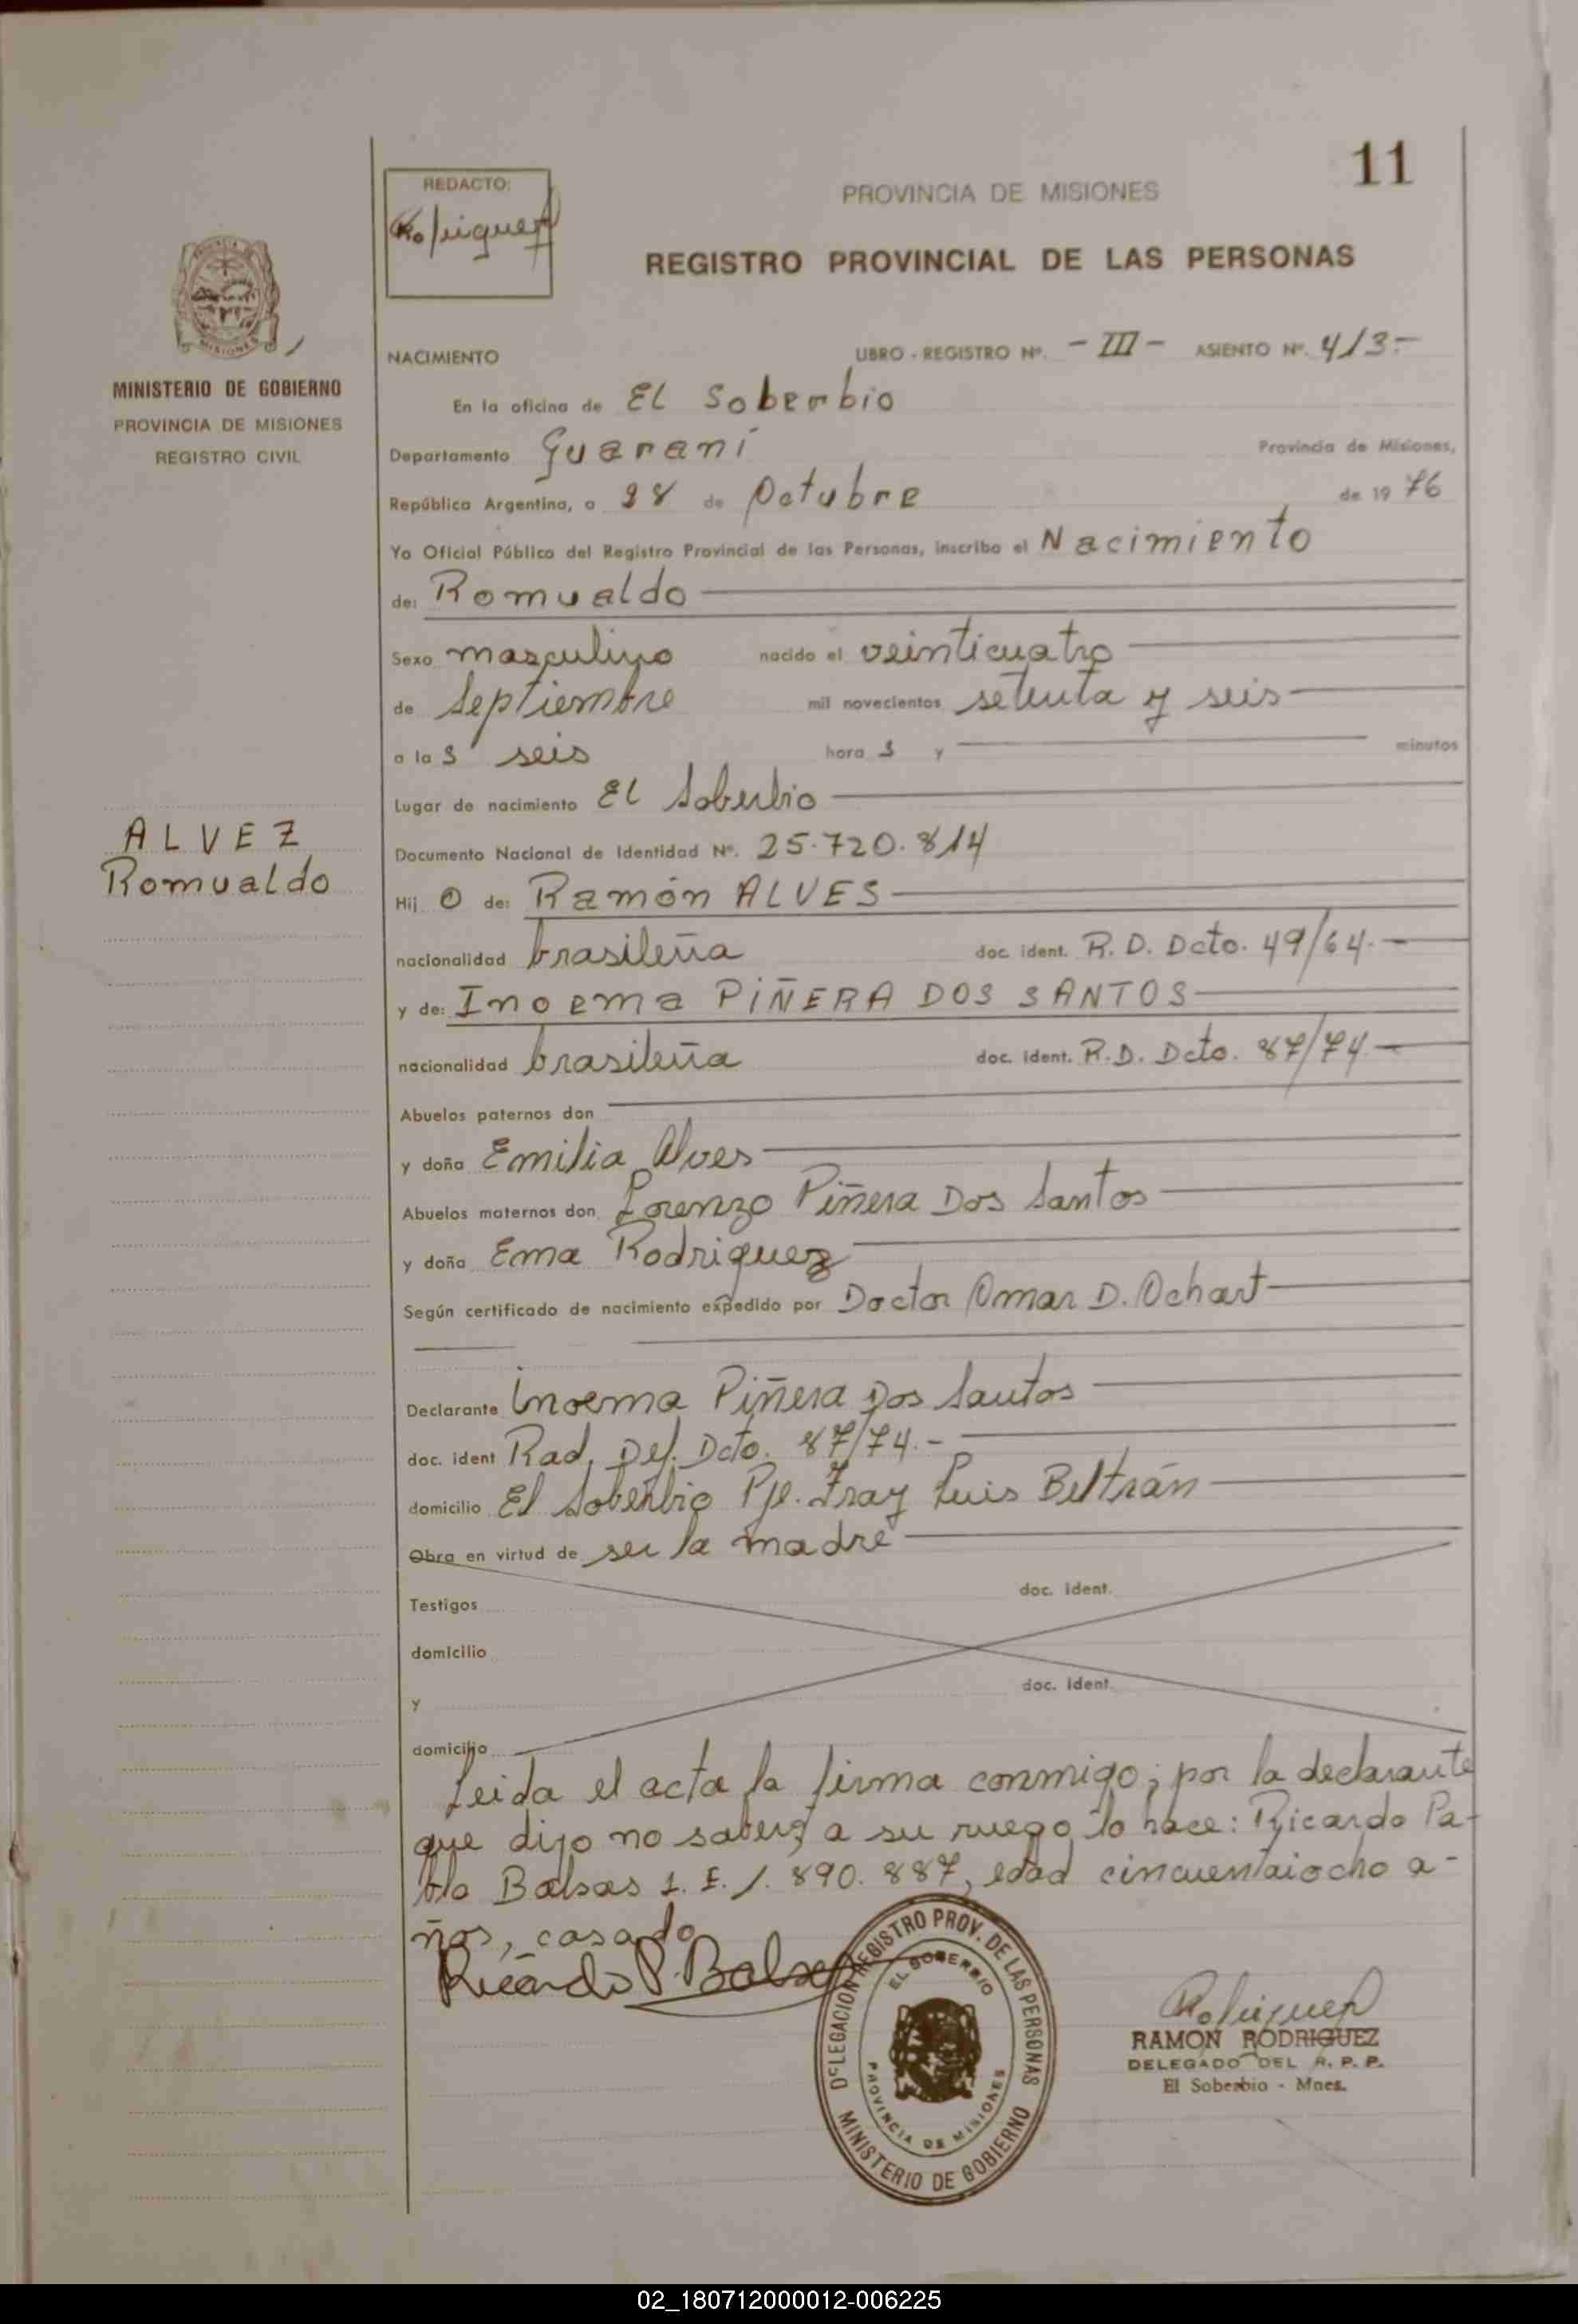 11
REDACTO:
Rodriguez
PROVINCIA DE MISIONES
REGISTRO PROVINCIAL DE LAS PERSONAS
MISIONES
MINISTERIO DE GOBIERNO
PROVINCIA DE MISIONES
REGISTRO CIVIL
NACIMIENTO LIBRO - REGISTRO Nº. - III - ASIENTO Nº. 413.-
En la oficina de El Soberbio
Departamento Guaraní Provincia de Misiones,
República Argentina, a 28 de Octubre de 19 76
Yo Oficial Público del Registro Provincial de las Personas, inscribo el Nacimiento
de: Romualdo
Sexo masculino nacido el veinticuatro
de Septiembre mil novecientos setenta y seis
a la s seis hora s y minutos
Lugar de nacimiento El Soberbio
ALVEZ
Romualdo
Documento Nacional de Identidad Nº. 25.720.814
Hij o de: Ramón ALVES
nacionalidad brasileña doc. ident. R.D. Dcto. 49/64.-
y de: Inoema PIÑERA DOS SANTOS
nacionalidad brasileña doc. ident. R.D. Dcto. 87/74.-
Abuelos paternos don
y doña Emilia Alves
Abuelos maternos don Lorenzo Piñera Dos Santos
y doña Ema Rodriguez
Según certificado de nacimiento expedido por Doctor Omar D. Ochart
Declarante Inoema Piñera Dos Santos
doc. ident Rad. Def. Dcto. 87/74.-
domicilio El Soberbio Pje. Fray Luis Beltrán
Obra en virtud de ser la madre
Testigos doc. ident.
domicilio
y doc. ident.
domicilio
Leida el acta la firma conmigo; por la declarante
que dijo no saber, a su ruego lo hace: Ricardo Pa-
blo Balsas L.E. 1.890.887, edad cincuentaiocho a-
ños, casado
Ricardo P. Balsas
DELEGACION REGISTRO PROV. DE LAS PERSONAS
EL SOBERBIO
PROVINCIA DE MISIONES
MINISTERIO DE GOBIERNO
Rodriguez
RAMON RODRIGUEZ
DELEGADO DEL R. P. P.
El Soberbio - Mnes.
02_180712000012-006225